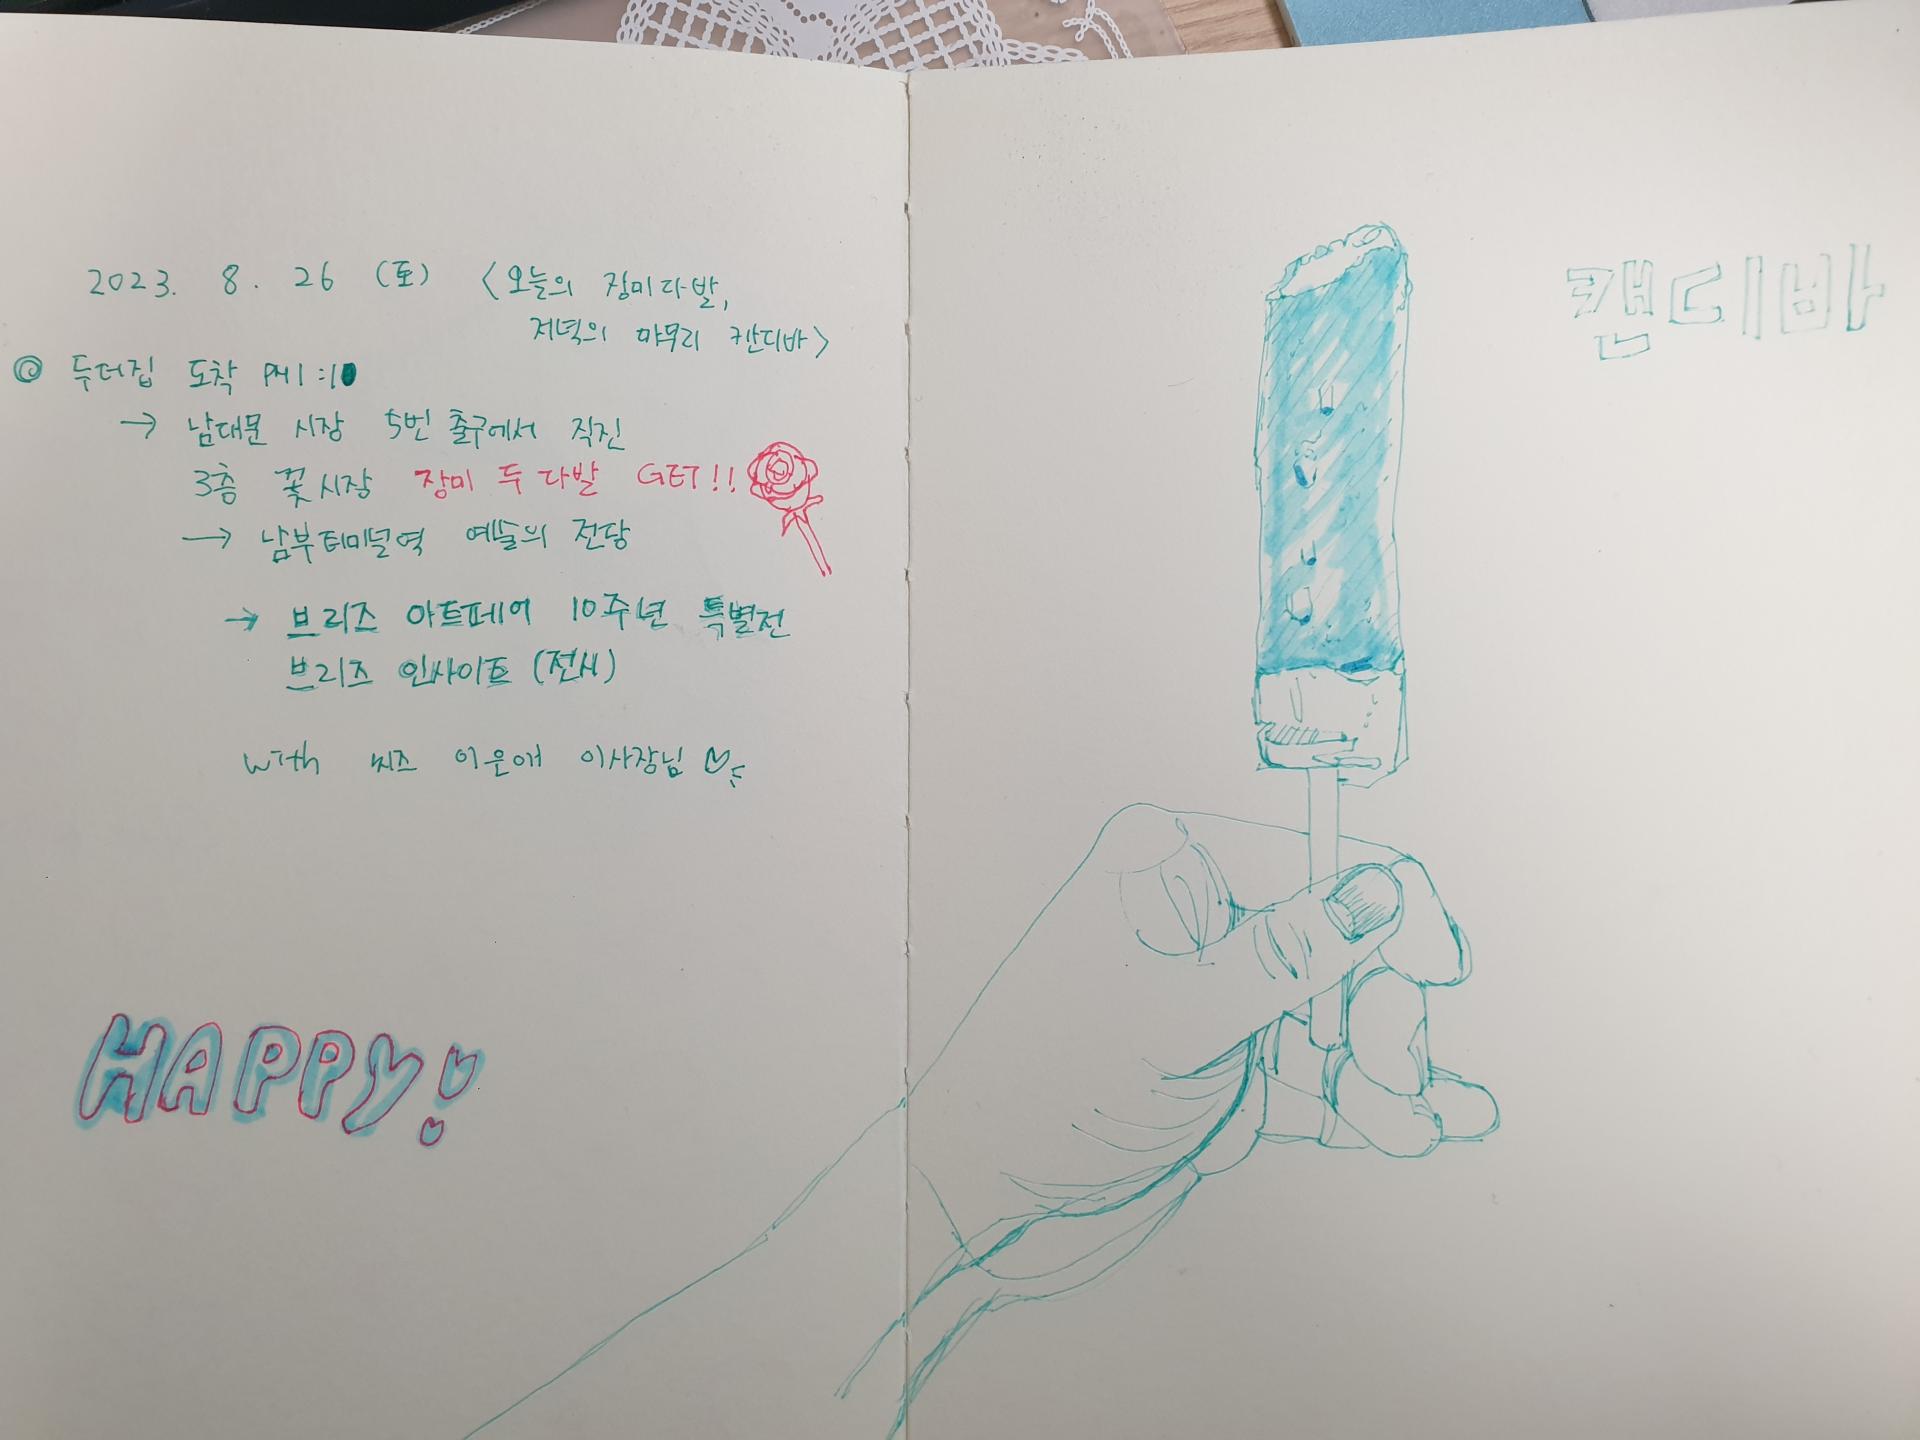 2023. 8. 26 (토) <오늘의 장미다발,
저녁의 마무리 캔디바>
◎ 두더집 도착 PM 1:10
→ 남대문 시장 5번 출구에서 직진
3층 꽃시장 장미 두 다발 GET!!
→ 남부터미널역 예술의 전당
→ 브리즈 아트페어 10주년 특별전
브리즈 인사이트 (전시)
with 씨즈 이은애 이사장님♡
HAPPY!
캔디바